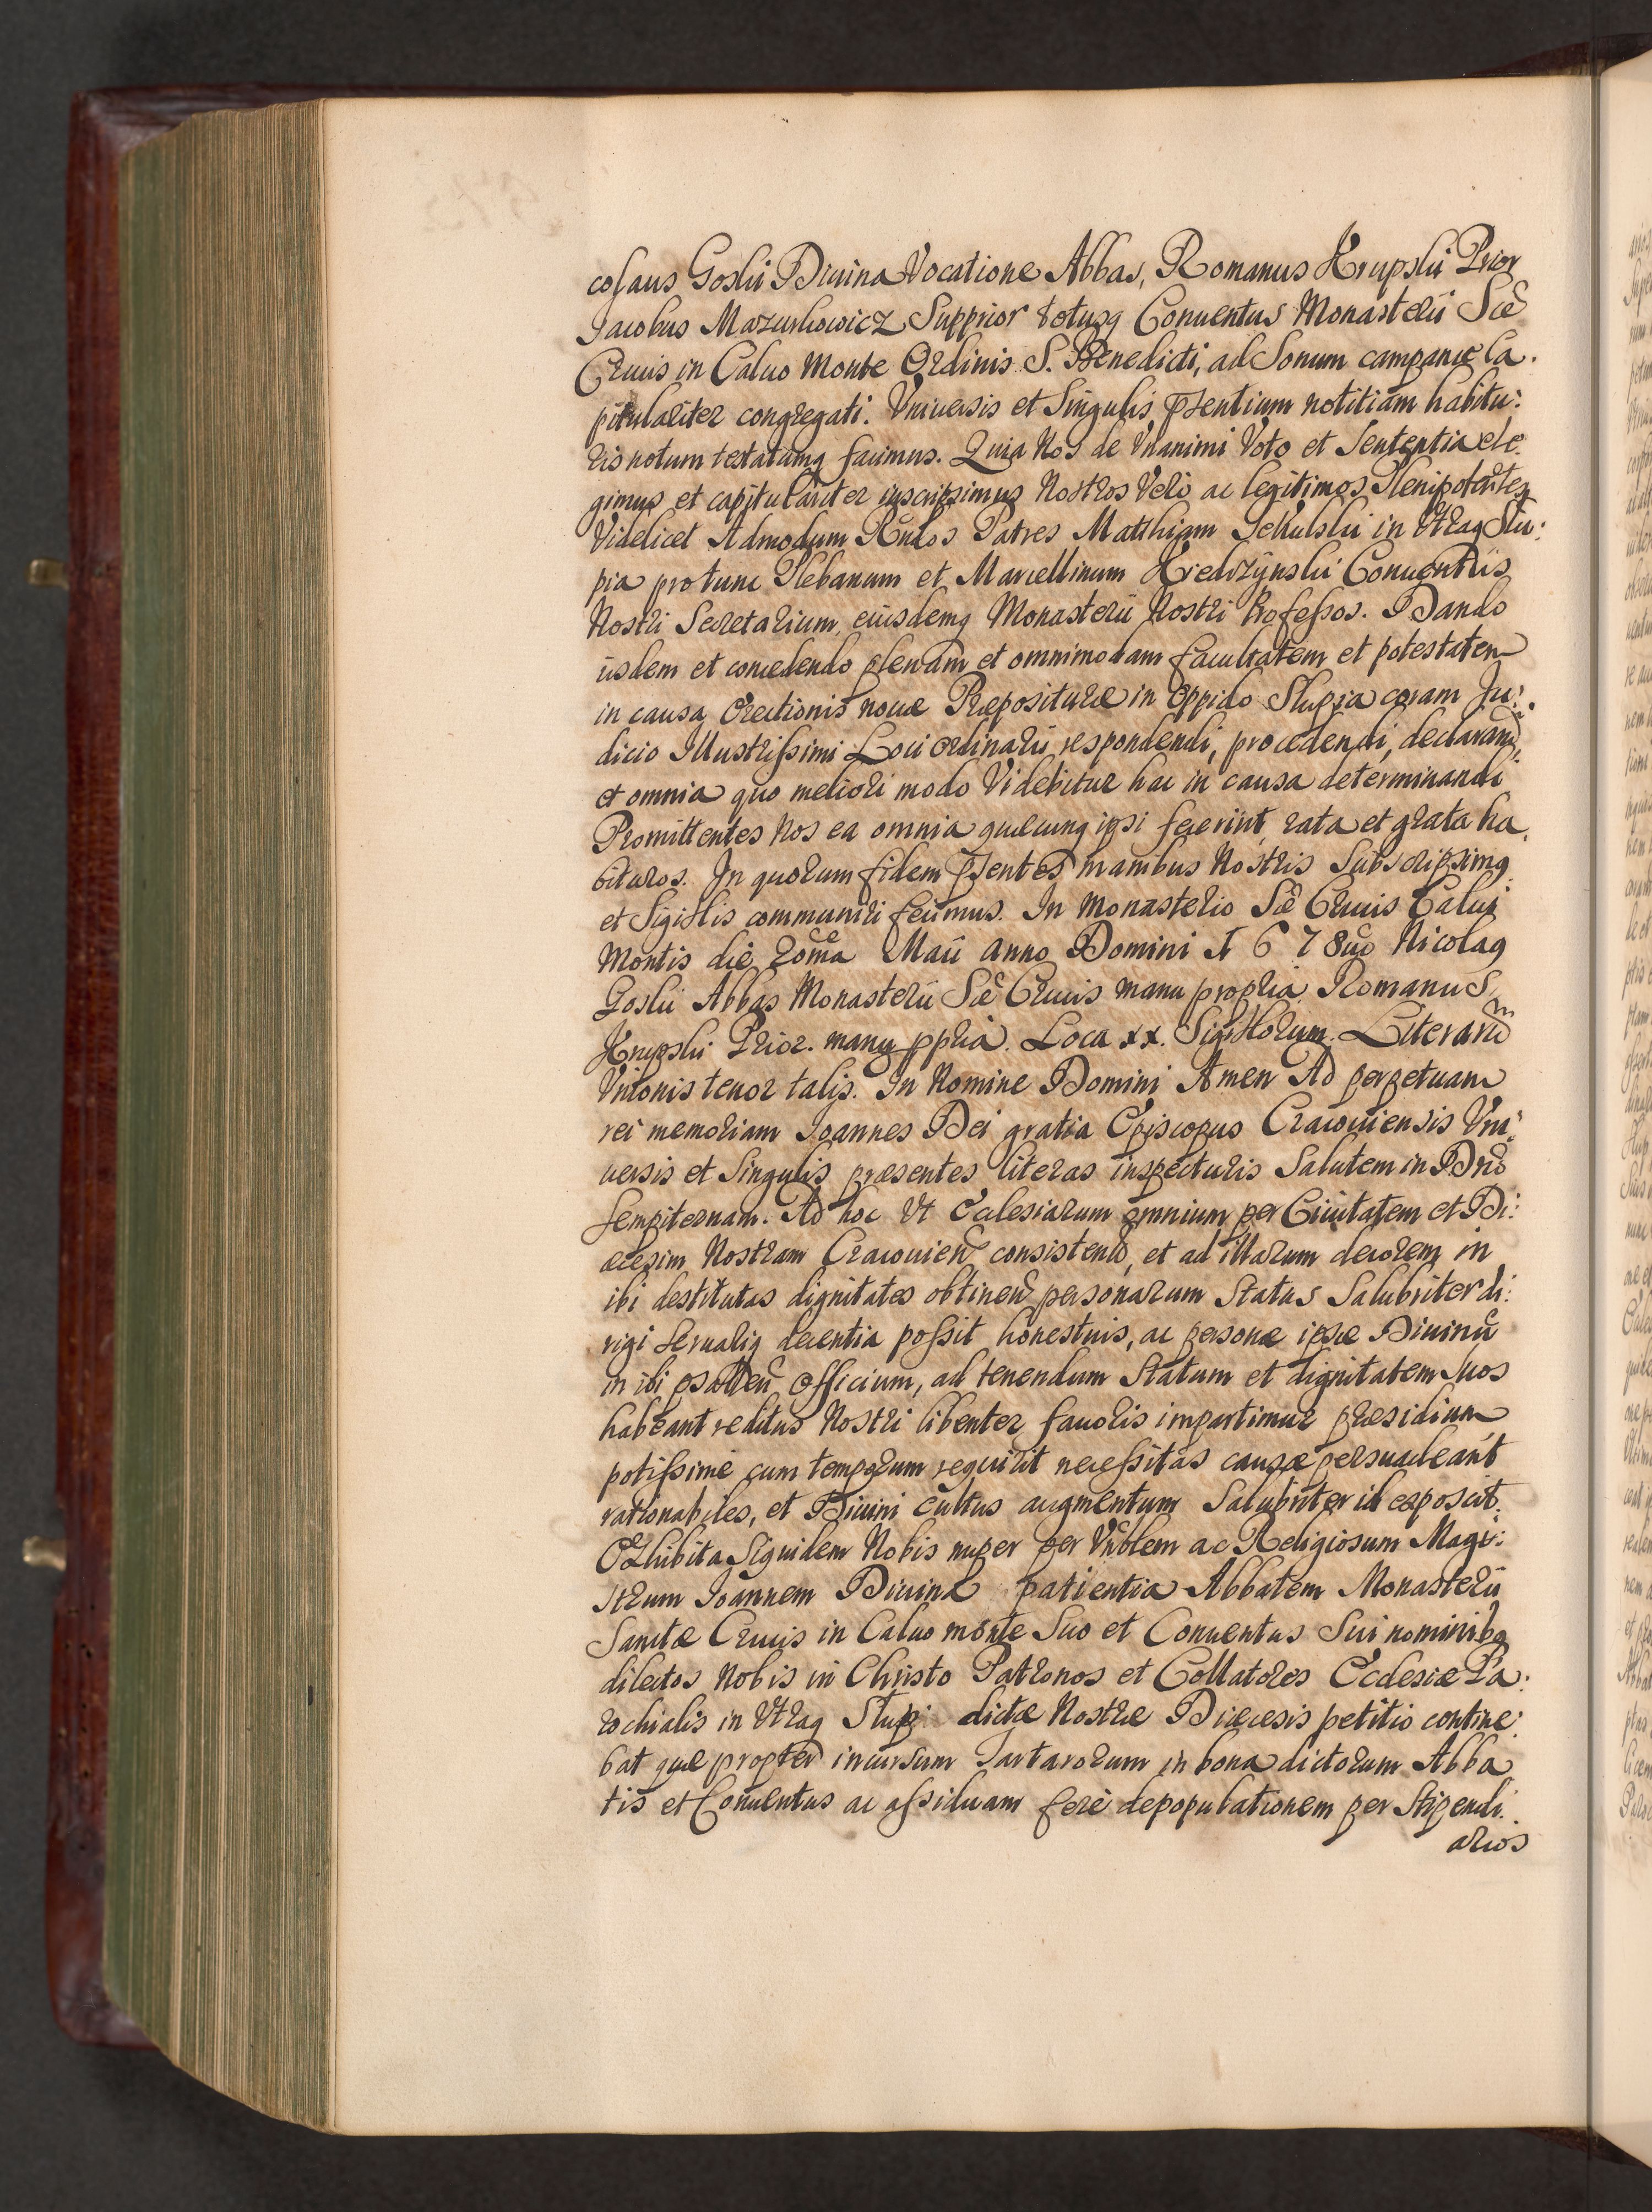 colaus Goski Diuina Vocatione Abbas, Romanus Krupski Prior
Jacobus Mazurkowicz Supprior totusq Conuentus Monasterii Scē
Crucis in Caluo Monte Ordinis S. Benedicti, ad Sonum campanæ Ca:
pitulariter congregati. Vniuersis et Singulis pñsentium notitiam habitu:
ris notum testatumq facimus. Quia Nos de Vnanimi Voto et Sententia ele:
gimus et capitulariter inscripsimus Nostros Veros ac legitimos Plenipotentes
Videlicet Admodum Rndos Patres Matthiam Sekulski in Vtraq Slu:
pia protunc Plebanum et Marcellinum Kiedrzynski Conuentus
Nostri Secretarium, eiusdemq Monasterii Nostri Professos. Dando
iisdem et concedendo plenam et omnimodam facultatem et potestatem
in causa Erectionis nouæ Præpositurae in Oppido Slupia coram Ju:
dicio Illustrissimi Loci Ordinarii respondendi, procedendi, declarandi,
et omnia quo meliori modo Videbitur hac in causa determinandi
Promittentes Nos ea omnia quæcunq ipsi fecerint, rata et grata ha:
bituros. In quorum fidem pñsentes manibus Nostris Subscripsimq
et Sigillis communiri fecimus. In Monasterio Scē Crucis Calui
Montis die 20ma Maii Anno Domini 1678uo Nicolaq
Goski Abbas Monasterii Scē Crucis manu propria. Romanus
Krupski Prior. manu ppria. Loca xx. Sigillorum. Literarum
Vnionis tenor talis. In Nomine Domini Amen Ad perpetuam
rei memoriam Joannes Dei gratia Episcopus Cracouiensis Vni:
uersis et Singulis præsentes literas inspecturis Salutem in Dno
Sempiternam. Ad hoc Vt Ecclesiarum omnium per Ciuitatem et Di:
æcesim Nostram Cracouien consisten, et ad illarum decorem in
ibi destitutas dignitates obtinen personarum Status Salubriter di:
rigi Serualiq decentia possit honestius, ac personæ ipsæ Diuinū
in ibi psallen Officium, ad tenendum Statum et dignitatem Suos
habeant reditus Nostri libenter fauoris impartimur præsidium
potissimè cum temporum requirit necessitas causæ persuadeant
rationabiles, et Diuini cultus augmentum Salubriter id exposcit.
Exhibita Siquidem Nobis nuper per Vnblem ac Religiosum Magi:
strum Joannem Diuina patientia Abbatem Monasterii
Sanctæ Crucis in Caluo monte Suo et Conuentus Sui nominibq
dilectos Nobis in Christo Patronos et Collatores Ecclesiæ Pa:
rochialis in Vtraq Slupi dictæ Nostræ Diæcesis petitio contine:
bat quæ propter incursum Tartarorum in bona dictorum Abba
tis et Conuentus ac assiduam ferè depopulationem per Stipendi:
arios